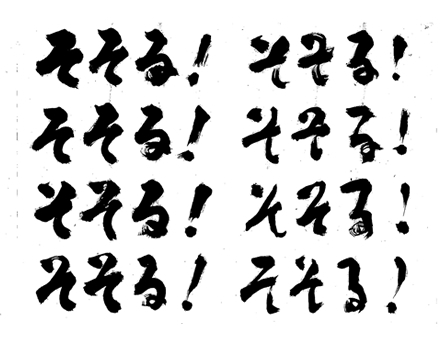 そそる! そそる!
そそる! そそる!
そそる! そそる!
そそる! そそる!